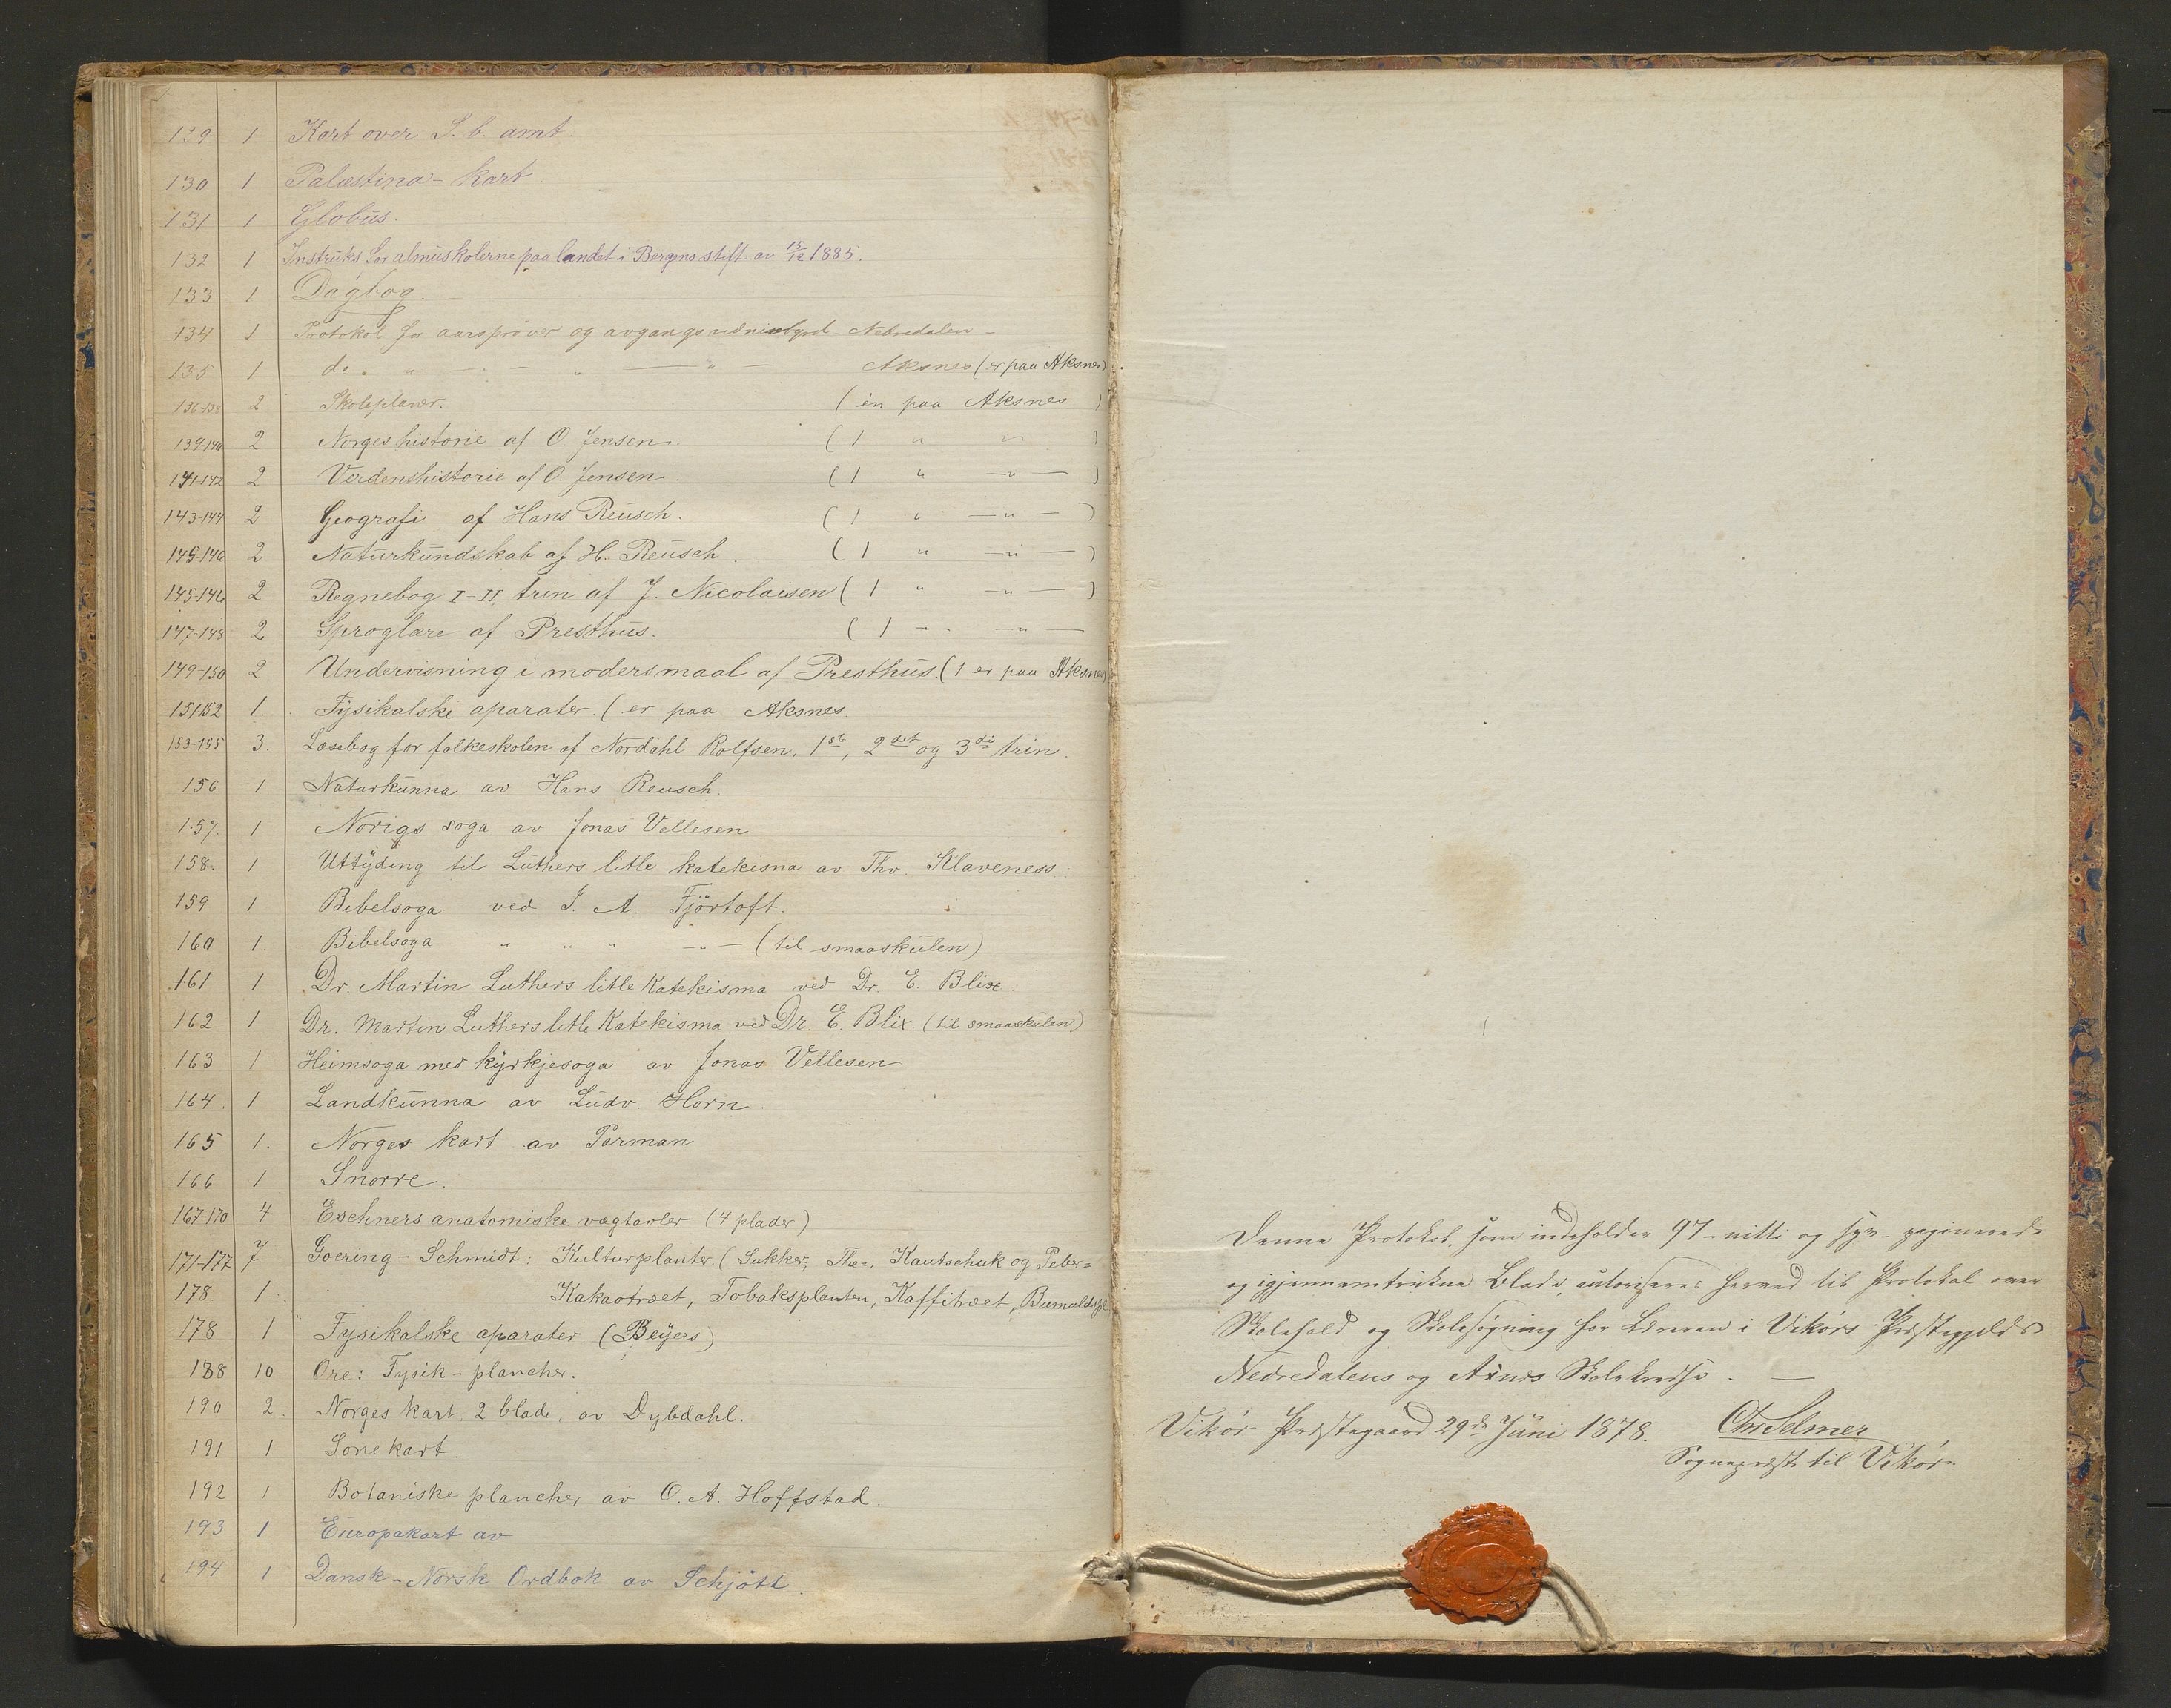 129 1 Kart over S. b. amt.
130 1 Palæstina-kart.
131 1 Globus.
132 1 Instruks for almuskolerne paa landet i Bergens stift av 15/12 1885.
133 1 Dagbog.
134 1 Protokol for aarsprøver og avgangsvidnesbyrd Nedredalen -
135 1 do. „ — „ — „ — Aksnes (er paa Aksnes)
136-138 2 Skoleplaner. (én paa Aksnes)
139-140 2 Norges historie af O. Jensen. (1 „ „ )
141-142 2 Verdenshistorie af O. Jensen. (1 „ —„— )
143-144 2 Geografi af Hans Reusch. (1 „ —„— )
145-146 2 Naturkundskab af H. Reusch. (1 „ —„— )
145-146 2 Regnebog I-II trin af J. Nicolaisen (1 „ —„— )
147-148 2 Sproglære af Presthus. (1 -- —„—
149-150 2 Undervisning i modersmaal af Presthus. (1 er paa Aksnes)
151-152 1 Fysikalske aparater. (er paa Aksnes.
153-155 3. Læsebog for folkeskolen af Nordahl Rolfsen, 1ste, 2det og 3die trin.
156 1 Naturkunna av Hans Reusch.
157. 1 Norigs soga av Jonas Vellesen
158. 1 Uttyding til Luthers litle katekisma av Thv. Klaveness
159 1 Bibelsoga ved J. A. Fjörtoft.
160 1. Bibelsoga „ „ „ —„— (til smaaskulen)
161 1 Dr. Martin Luthers litle Katekisma ved Dr. E. Blix.
162 1 Dr. Martin Luthers litle Katekisma ved Dr. E. Blix (til smaaskulen)
163 1 Heimsoga med kyrkjesoga av Jonas Vellesen
164. 1 Landkunna av Ludv. Horn.
165 1. Norges kart av Parman
166 1 Snorre.
167-170 4 Eschners anatomiske vægtavler (4 plader)
171-177 7 Goering-Schmidt: Kulturplanter. (Sukker-, The-, Kautschuk og Peber=
178 1 Kakaotræet, Tobaksplanten, Kaffitræet, Bumuldspl
178 1 Fysikalske aparater (Beyers)
188 10 Ore: Fysik-plancher.
190 2. Norges kart. 2 blade, av Dybdahl.
191 1 Sonekart.
192 1 Botaniske plancher av O. A. Hoffstad.
193 1 Europakart av
194 1 Dansk-Norsk Ordbok av Schjött.
Denne Protokol, som indeholder 97 - nitti og syv - paginerede
og igjennemtrukne Blade, autoriseres herved til Protokol over
Skolehold og Skolesøgning for Læreren i Vikørs Præstegjelds
Nedredalens og Axnes Skolekredse. —
Vikør Præstegaard 29de Juni 1878. Chr Selmer
Sognepræst til Vikør.